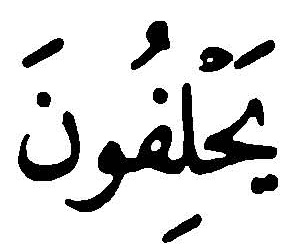 يَحْلِفُونَ